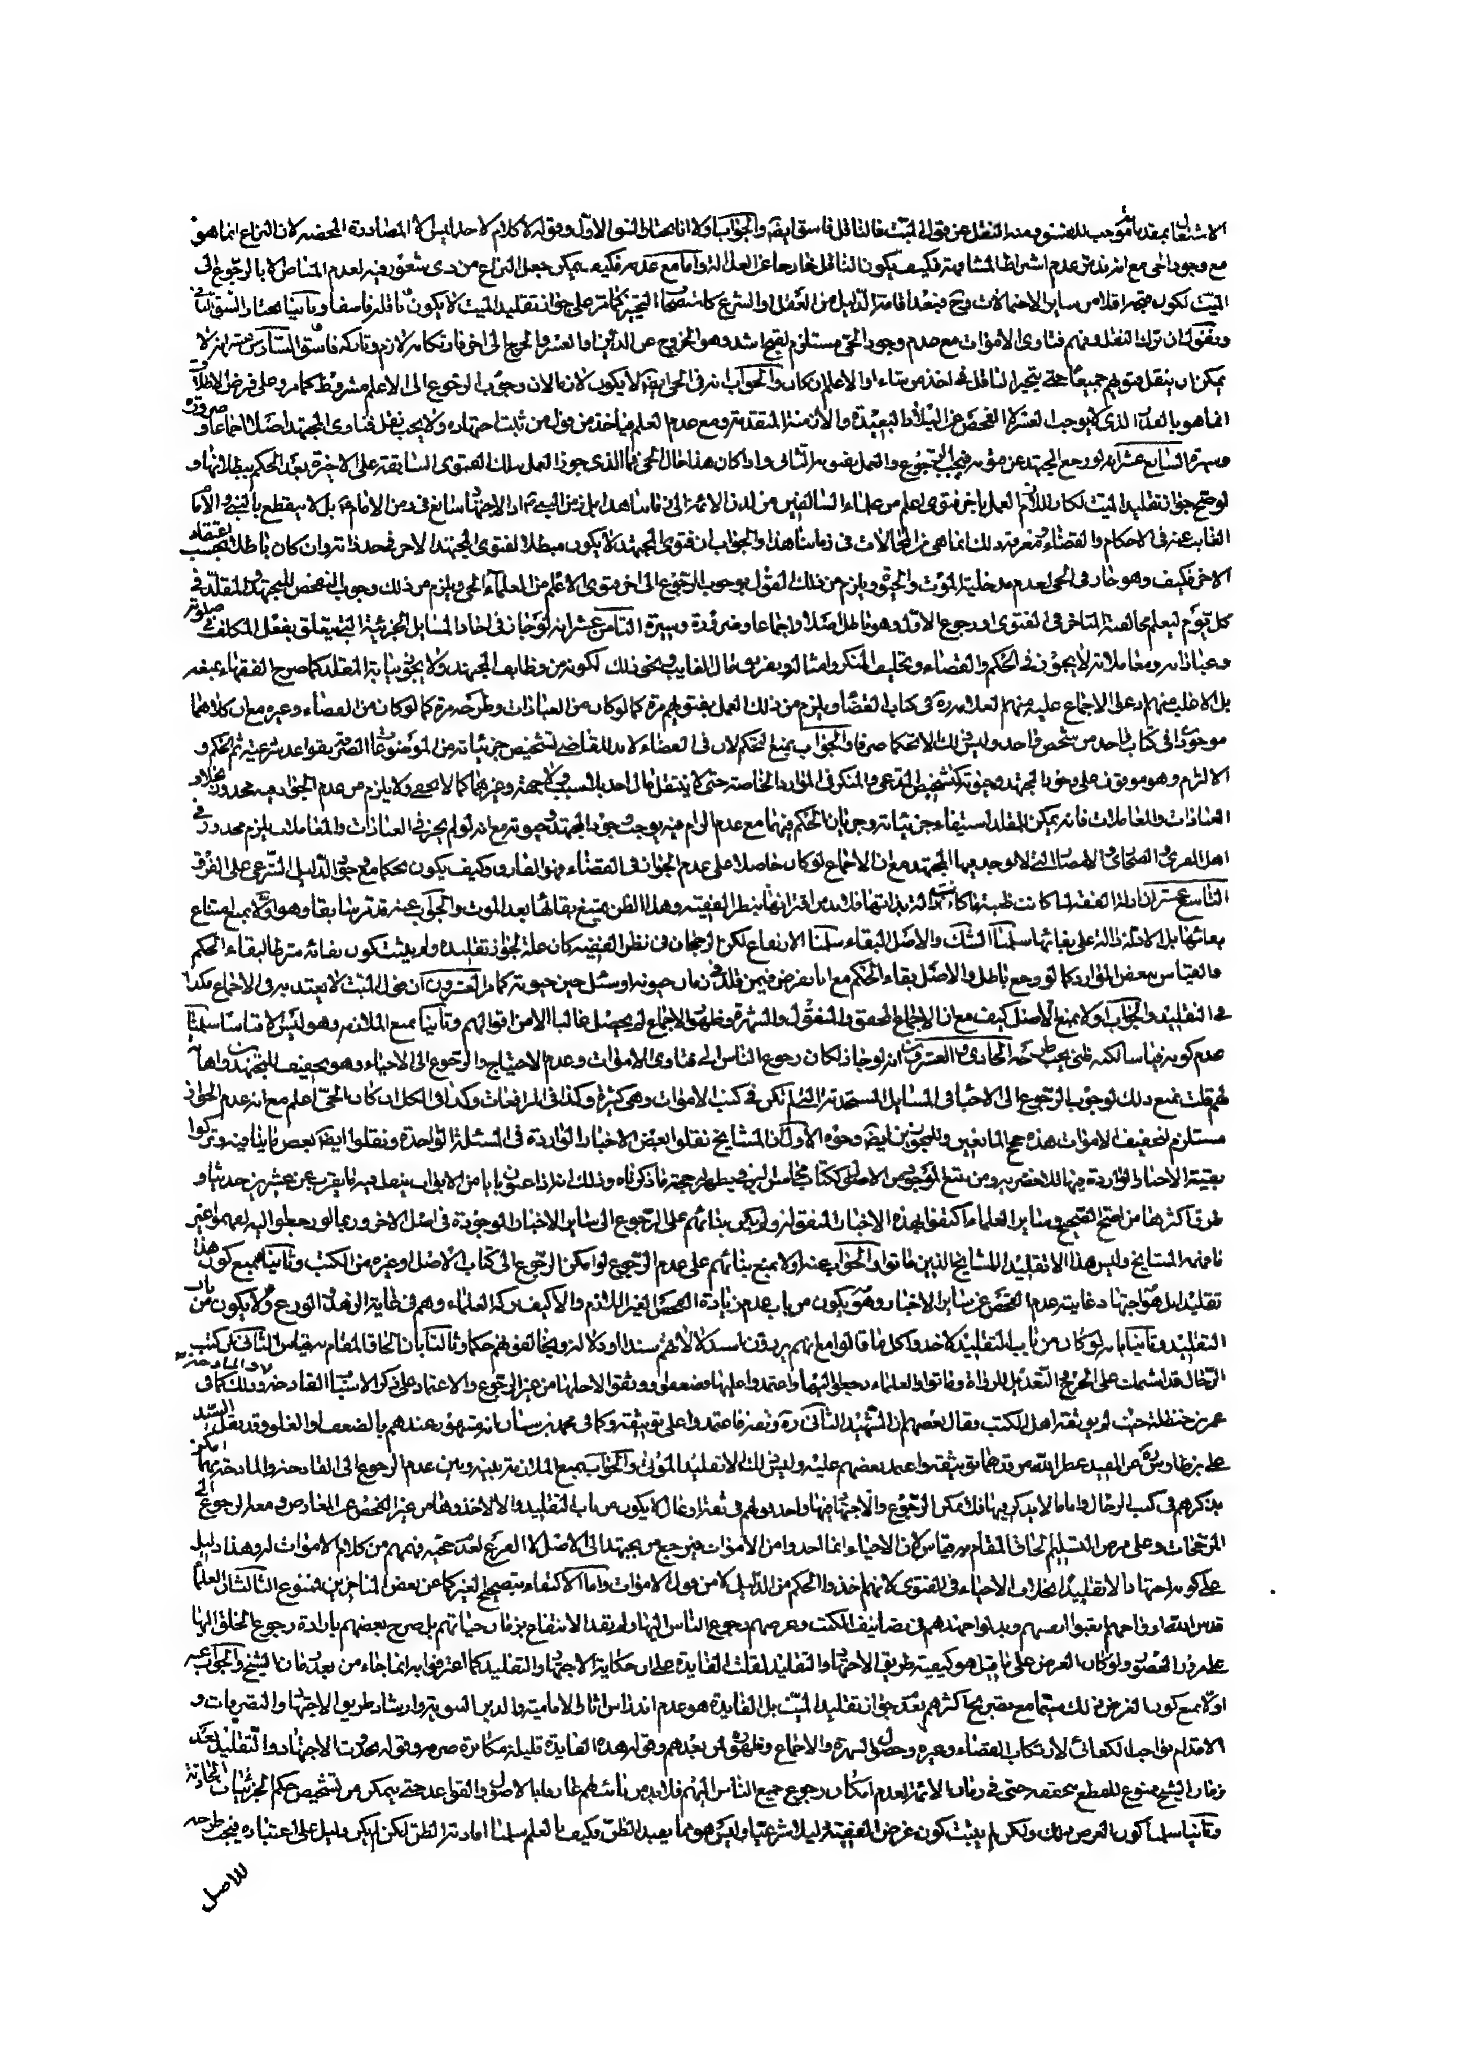 الاشتغال بمقدماته موجب للفسق ومنه النقل عن قول الميت فالناقل فاسق ايضا والجواب اولا انا نختار الشق الاول وقوله لا كلام لاحد ليس الا المصادرة المحضه لان النزاع انما هو
مع وجود الحى مع انه فكيف يكون الناقل خارجا عن العدالة واما مع عدمه فكيف يمكن جعل النزاع من ذى شعور فيه لعدم المناص الا بالرجوع الى
الميت لكونه من ساير الاحتمالات وح فبعد اقامة الدليل من العقل او الشرع على جواز تقليد الميت لا يكون ناقله فاسقا وثانيا نختار الشق الثانى
ونقول ان ترك النقل ونهم فتاوى الاموات مع عدم وجود الحى مستلزم لقبح اشد وهو الخروج عن الدين والعسر والحرج الى اخر ما السادس عشر انه لا
يمكن ان ينقل فتويهم جميعا حتى يتخير الناقل فى اخذ من شاء او الاعلم ان كان والجواب انه فى الحى ايضا لا يكون لانا الان وجوب الرجوع الى الاعلم مشروط كما مر وعلى فرض الاطلاق
انما هو بالقدر الذى لا يوجب العسر كالفحص عن البلاد البعيدة والازمنة المتقدمة ومع عدم العلم فياخذ من قول من ثبت اجتهاده ولا يجب نقل فتاوى المجتهد اصلا اجماعا وضرورة
وسيرة السابع عشر انه لو رجع المجتهد عن فتويه فيجب الرجوع والعمل بفتويه الثانى واذا كان هذا حال الحى فما الذى جوز العمل بتلك الفتوى السابقة على الاخيرة بعد الحكم ببطلانها و
لو صح جواز تقليد الميت لكان اللازم العمل باخر فتوى يعلم من علماء السالفين من لدن الائمة الى زماننا هذا بل زمن النبى ص اذ الاجتهاد سائغ فى زمن الامام ع بل لا ينقطع بالنبى و
الغائب عنه فى الاحكام والقضاء ومعرفة ذلك انما هى من المحالات فى زماننا هذا والجواب ان فتوى المجتهد لا يكون مبطلا لفتوى المجتهد الاخر فى حد ذاته وان كان باطلا بحسب اعتقاد
الاخر فكيف وهو جار فى الحى لعدم مدخلية الموت والحيوة ويلزم من ذلك القول بوجوب الرجوع الى اخر فتوى الاعلم من العلماء الحى ويلزم من ذلك وجوب الفحص للمجتهد والمقلد فى
كل يوم ليعلم مخالفة المتاخر فى الفتوى او رجوع الاول وهو باطل اصلا واجماعا وضرورة وسيرة الثامن عشر انه لو جاز فى احاد المسايل الجزئية التى يتعلق بفعل المكلف فى صلوته
وعباداته ومعاملاته لا يجوز فى الحكم والقضاء وتحليف المنكر وامثاله وبيع مال الغايب ونحو ذلك لكونه من وظايف المجتهد ولا يجوز نيابة المقلد كما صرح الفقهاء بمنعه
بل الاغلب منهم ادعى الاجماع عليه منهم العلامة ره فى كتاب القضاء ويلزم من ذلك العمل بفتويهم مرة كما لو كان من العبادات وطرحه مرة كما لو كان من القضاء وغيره مع ان كلاهما
موجود فى كتاب واحد من شخص واحد وليس ذلك الا تحكما صرفا والجواب بمنع التحكم لان فى القضاء لابد للقاضى تشخيص جزئياته من الموضوعات الصرفة بقواعد شرعية ثم الحكم و
الالزام وهو موقوف على وجود المجتهد وحيوته كتشخيص المدعى والمنكر فى الموارد الخاصة حتى لا ينتقل مال احد بلا سبب ولا جهة وغيرهما كما لا يخفى ولا يلزم من عدم الجواز فيه محذور بخلاف
العبادات والمعاملات فانه يمكن للمقلد استيفاء جزئياته وجريان الحكم فيها مع عدم الزام فيه يوجب وجود المجتهد وحيوته مع انه لو لم يجز فى العبادات والمعاملات يلزم محذور فى
اهل القرى والصحارى والامصار التى لا يوجد فيها المجتهد مع ان الاجماع لو كان حاصلا على عدم الجواز فى القضاء فهو الفارق وكيف يكون تحكما مع وجود الدليل الشرعى على الفرق
التاسع عشر ان ادلة الفقه لما كانت ظنية الفقيه وهذا الظن يمتنع بقائها بعد الموت والجواب عنه قد مر سابقا وهو اولا بمنع امتناع
بقائها بل الادلة دالة على بقائها سلمنا الشك والاصل البقاء سلمنا الارتفاع لكن الرجحان فى نظر الفقيه كان علة لجواز تقليده ولم يثبت كون بقائه شرطا لبقاء الحكم
والقياس ببعض الموارد كما لو رجع باطل والاصل بقاء الحكم مع انا نفرض فيمن قلده فى زمان حيوته او سئل حين حيوته كما مر العشرون ان قول الميت لا يعتد به فى الاجماع فكذا
فى التقليد والجواب اولا بمنع الاصل كيف مع ان الاجماع المحقق والمنقول والشهرة وظهور الاجماع لم يحصل غالبا الا من اقوالهم وثانيا بمنع الملازمة وهو ليس الا قياسا سلمنا
عدم كونه قياسا لكنه ظنى يجب طرحه الحادى والعشرون انه لو جاز لكان رجوع الناس الى فتاوى الاموات وعدم الاحتياج والرجوع الى الاحياء وهو تخفيف للمجتهدين واهانة
لهم قلت بمنع ذلك لوجوب الرجوع الى الاحياء فى المسايل المستحدثة التى لم تكن فى كتب الاموات وهى كثيرة وكذا فى المرافعات وكذا فى الكل ان كان الحى اعلم مع انه عدم الجواز
مستلزم لتخفيف الاموات هذه حجج المانعين وللمجوزين ايضا وجوه الاول ان المشايخ نقلوا بعض الاخبار الواردة فى المسئلة الواحدة ونقلوا ايضا بعض ما ينافيه وتركوا
بقية الاخبار الواردة فيها للاختصار ومن تتبع الموجود من الاصول ككتاب محاسن البرقى يظهر صحة ما ذكرناه وذلك انه اذا عنون بابا من الابواب ينقل فيه ما يقرب من عشرين حديثا و
طرق اكثرها من اصح الصحيح وساير العلماء اكتفوا بهذه الاخبار المنقولة ولم يكن بنائهم على الرجوع الى ساير الاخبار الموجودة فى اصل الاخر وربما لو رجعوا اليه لفهموا غير
ما فهمه المشايخ وليس هذا الا تقليدا للمشايخ الذين ماتوا والجواب عنه اولا بمنع بنائهم على عدم الرجوع لو امكن الرجوع الى كتاب الاصل وغيره من الكتب وثانيا بمنع كون هذا
تقليدا بل هو اجتهاد غايته عدم الفحص عن ساير الاخبار وهو يكون من باب عدم زيادة الفحص الغير اللازم والا كيف يتركه العلماء وهم فى غاية الزهد والورع ولا يكون من باب
التقليد وثانيا بانه لو كان من باب التقليد لاخذوا كل ما قالوا مع انهم يردون سندا او دلالة ويخالفونهم حكما وثالثا بان الحاق المقام به قياس الثانى ان كتب
الرجال قد اشتملت على الجرح والتعديل للرواة وماتوا والعلماء رجعوا اليها واعتمدوا عليها وضعفوا ووثقوا لاجلها من غير الرجوع والاعتماد على ذكر الاسباب القادحة والمادحة وذلك كما فى
عمر بن حنظلة حيث لم يوثقه اهل الكتب وقال بعضهم ان الشهيد الثانى ره وثقه فاعتمدوا على توثيقه وكما فى محمد بن سنان انه مشهور عندهم بالضعف او الغلو وقد نقل السيد
على بن طاوس ره عن المفيد عطر الله مرقدهما توثيقه واعتمد بعضهم عليه وليس ذلك الا تقليد الموتى والجواب بمنع الملازمة بينه وبين عدم الرجوع الى القادحة والمادحة
بذكرهم فى كتب الرجال واما ما لا يذكر فيها فلا يمكن الرجوع والاجتهاد فيها واخذ قولهم فى ثقة او غال لا يكون من باب التقليد والا لاخذوها من غير الفحص عن المعارض ومع الرجوع الى
المرجحات وعلى فرض التسليم الحاق المقام به قياس لان الاحياء انما اخذوا من الاموات فيرجع من يجتهد الى الاصل لا الفرع فهمهم من كلام الاموات لهم وهذا دليل
على كونه اجتهادا لا تقليدا بخلاف الاحياء فى الفتوى لانهم اخذوا الحكم من الدليل لا من قول الاموات واما الاكتفاء بتصحيح الغير كما عن بعض المتاخرين فممنوع الثالث ان العلماء
قدس الله ارواحهم اتعبوا انفسهم وبذلوا جهدهم فى تصانيف الكتب وغرضهم رجوع الناس اليها ولم يقيد الانتفاع بزمان حياتهم بل صرح بعضهم بارادة رجوع الخلق اليها
على مر الدهور ولو كان الغرض على ما قيل هو كيفية طريق الاجتهاد والتقليد لقلت الفايدة على ان حكاية الاجتهاد والتقليد كما اعترفوا به انما جاء من بعد زمان الشيخ والجواب عنه
اولا بمنع كون الغرض ذلك سيما مع تصريح اكثرهم بعدم جواز تقليد الميت بل الفايدة هو عدم اندراس اثار الامامية والدين النبوية وارشاد طريق الاجتهاد والتصرفات و
الاقدام بواجب الكفائى لارتكاب القضاء وغيره وحصول الشهرة والاجماع وظهوره لمن بعدهم وقوله هذه الفايدة قليلة مكابرة صرفه وقوله بحدوث الاجتهاد والتقليد بعد
زمان الشيخ ممنوع للقطع بتحققه حتى فى زمان الائمة لعدم امكان رجوع جميع الناس اليهم فلابد من عارفا بالاصول والقواعد حتى يتمكن من تشخيص حكم الجزئيات الحادثة
وثانيا سلمنا كون الغرض ذلك ولكن لم يثبت كون غرض الفقيه دليلا شرعيا وليس هو مما يفيد الظن فكيف بالعلم سلمنا افادته الظن لكن لم يكن دليل على اعتباره فيجب طرحه
للاصل